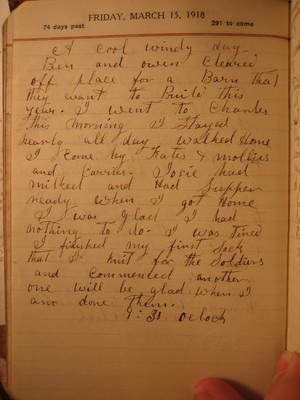 FRIDAY, MARCH 15, 1918
74 days past 291 to come
A cool windy day
Ben and owen Cleared
off place for a Barn that
they want to Build this
year. I went to Charles
this morning & Stayed
nearly all day walked Home
I come by Kates & mollies
and Carries. Josie had
milked and Had Supper
ready when I got Home
I was glad I had
nothing to do. I was tired
I finished my first Sock
that I knit for the Soldiers
and commenced another
one will be glad when I
am done them.
oclock